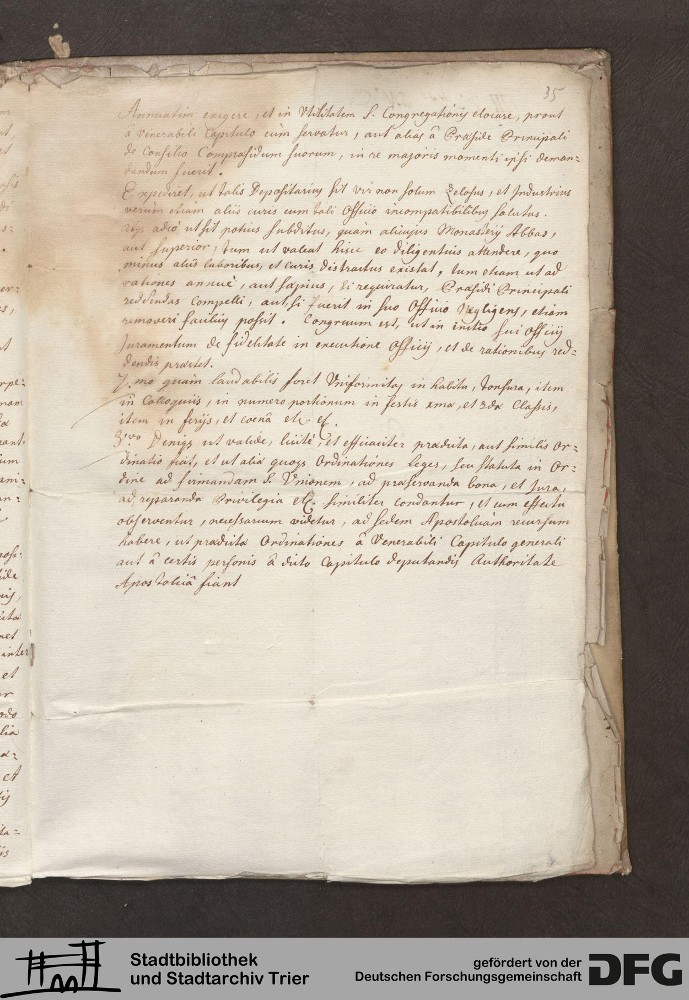 35
Annuatim exigere, et in Utilitatem S. Congregationis elocare, prout
à Venerabili Capitulo cum servatur, aut alias à Præside Principali
de Consilio Compræsidum suorum, in re majoris momenti ipsi deman-
dandum fuerit.
Expediret, ut talis Depositarius sit vir non solum Zelosus, et Industrius
verum etiam aliis curis cum tali Officio incompatibilibus solutus.
adeo ut sit potius subditus, quam alicujus Monasterij Abbas,
aut Superior, tum ut valeat hisce eo diligentius attendere, quo
minus aliis laboribus, et curis distractus existat, tum etiam ut ad
rationes annuè, aut sæpius, si requiratur, Præsidi Principali
reddendas compelli, aut si fuerit in suo Officio Negligens, etiam
removeri facilius possit. Congruum est, ut in initio sui Officij
Juramentum de fidelitate in executione Officij, et de rationibus red-
dendis præstet.
7.mo quam laudabilis foret Uniformitas in habitu, tonsura, item
in Colloquiis, in numero portionum in festis 1mæ, et 2dæ Classis,
item in ferijs, et coena etc etc.
8.vo Deniq; ut valide, licitè, et efficaciter prædicta, aut similis Or-
dinatio fiat, et ut alia quoq; Ordinationes leges, seu statuta in Or-
dine ad firmandam S. Unionem, ad præservanda bona, et Jura,
ad reparanda Privilegia etc. similiter condantur, et cum effectu
observentur, necessarium videtur, ad Sedem Apostolicam recursum
habere, ut prædicta Ordinationes à Venerabili Capitulo generali
aut à certis personis à dicto Capitulo deputandis Authoritate
Apostolicâ fiant
Stadtbibliothek
und Stadtarchiv Trier
gefördert von der
Deutschen Forschungsgemeinschaft
DFG